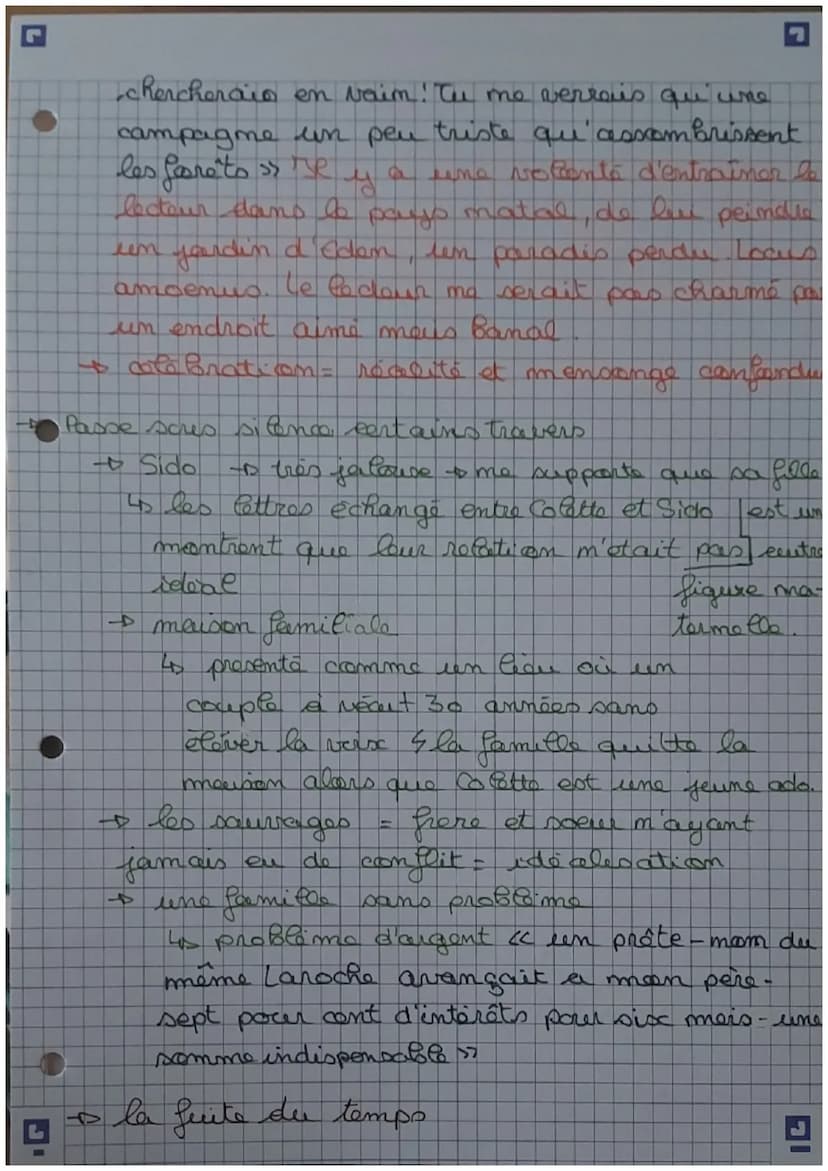 chercherais en vain! Tu ne verrais qu'une
campagne un peu triste qu'assombrissent
les forêts » Il y a une volonté d'entraîner le
lecteur dans le pays natal, de lui peindre
un jardin d'Eden, un paradis perdu. Locus
amoenus. Le lecteur ne serait pas charmé pa
un endroit aimé mais banal.
→ célébration = réalité et mensonge confondu
→ Passe sous silence certains travers
→ Sido → très jalouse → ne supporte que sa fille
↳ les lettres échangé entre Colette et Sido [est un
montrent que leur relation n'était pas] eutre
idéal figure ma-
→ maison familiale ternelle.
↳ présenté comme un lieu où un
couple à vécut 30 années sans
élever la voix ↯ la famille quitte la
maison alors que Colette est une jeune ado.
→ les sauvages = frère et soeur n'ayant
jamais eu de conflit = idéalisation
→ une famille sans problème
↳ problème d'argent « un prête-nom du
même Laroche avançait à mon père -
sept pour cent d'intérêts pour six mois - une
somme indispensable »
→ la fuite du temps